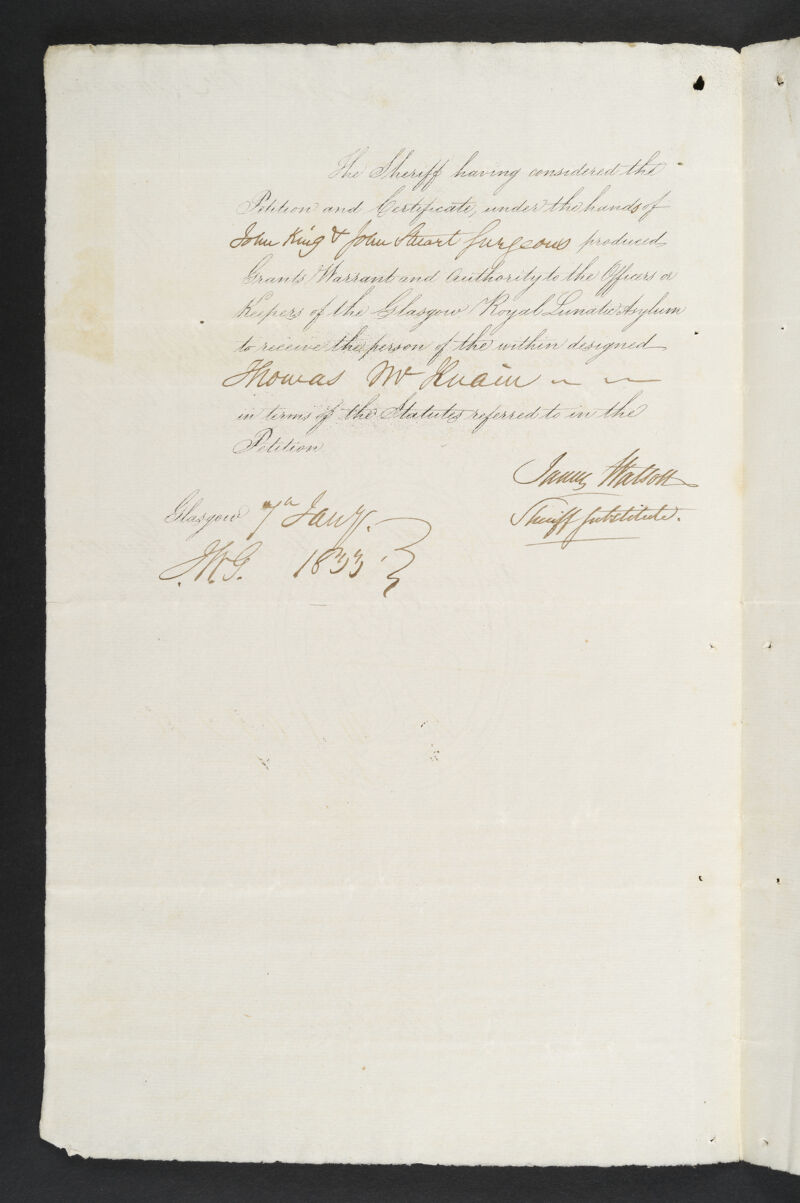 The Sheriff having considered the
Petition and Certificate, under the hands of
John King & John Stuart Surgeons produced
Grants Warrant and Authority to the Officers or
Keepers of the Glasgow Royal Lunatic Asylum
to receive the person of the within designed
Thomas Mc
in terms of the Statutes referred to in the
Petition
James Watson
Sheriff Substitute.
Glasgow 7th Jany.
1833